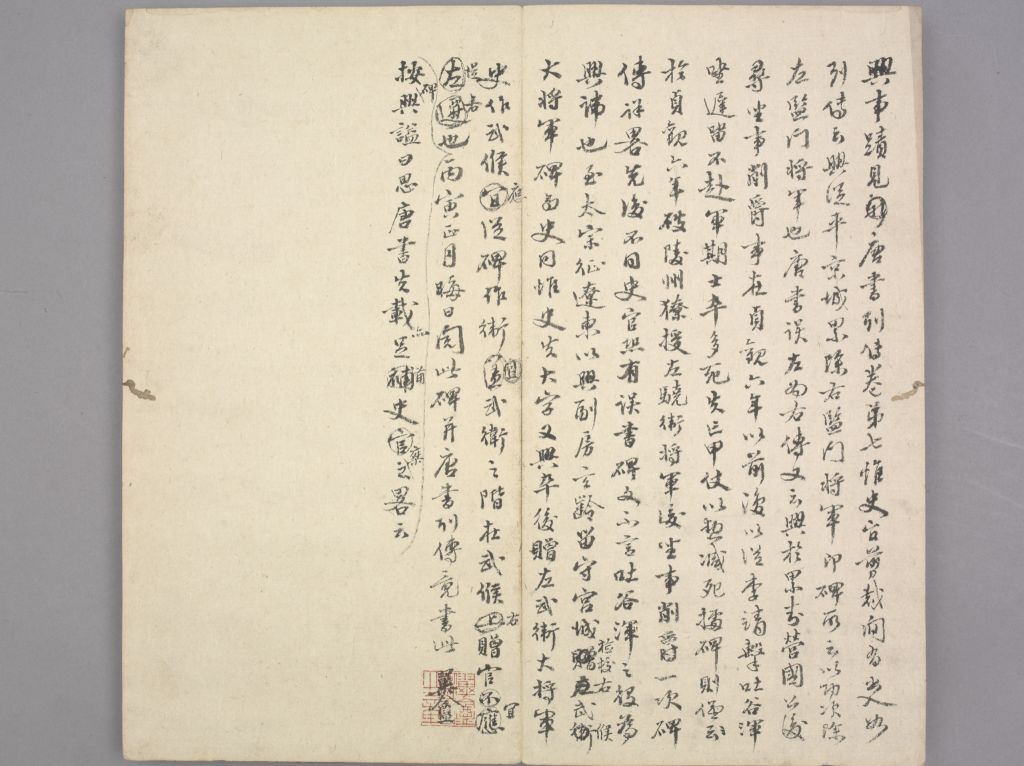 興事蹟見舊唐書列傳卷第七惟史官剪裁間有少異如
列傳云興從平京城累除右監門將軍即碑所云以功次除
左監門將軍也唐書誤左為右傳又云興於累封營國公後
尋坐事削爵事在貞觀六年以前復以從李靖擊吐谷渾
坐遲留不赴軍期士卒多死失亡甲仗以勲減死據碑則但云
於貞觀六年破陵州獠授左驍衛將軍後坐事削爵一次碑
傳詳畧先後不同史官恐有誤書碑文不言吐谷渾之役為
興諱也至太宗征遼東以興副房玄齡留守宮城贈左武衛
檢校右武候
大將軍碑與史同惟史失大字又興卒後贈左武衛大將軍
史作武候宜從碑作衛武衛之階在武候上贈官不應
應 宜 右 宜
左迴也丙寅正月晦日閱此碑并唐書列傳竟書此
從右
按興謚曰思唐書失載足補史官之畧云
碑 亦